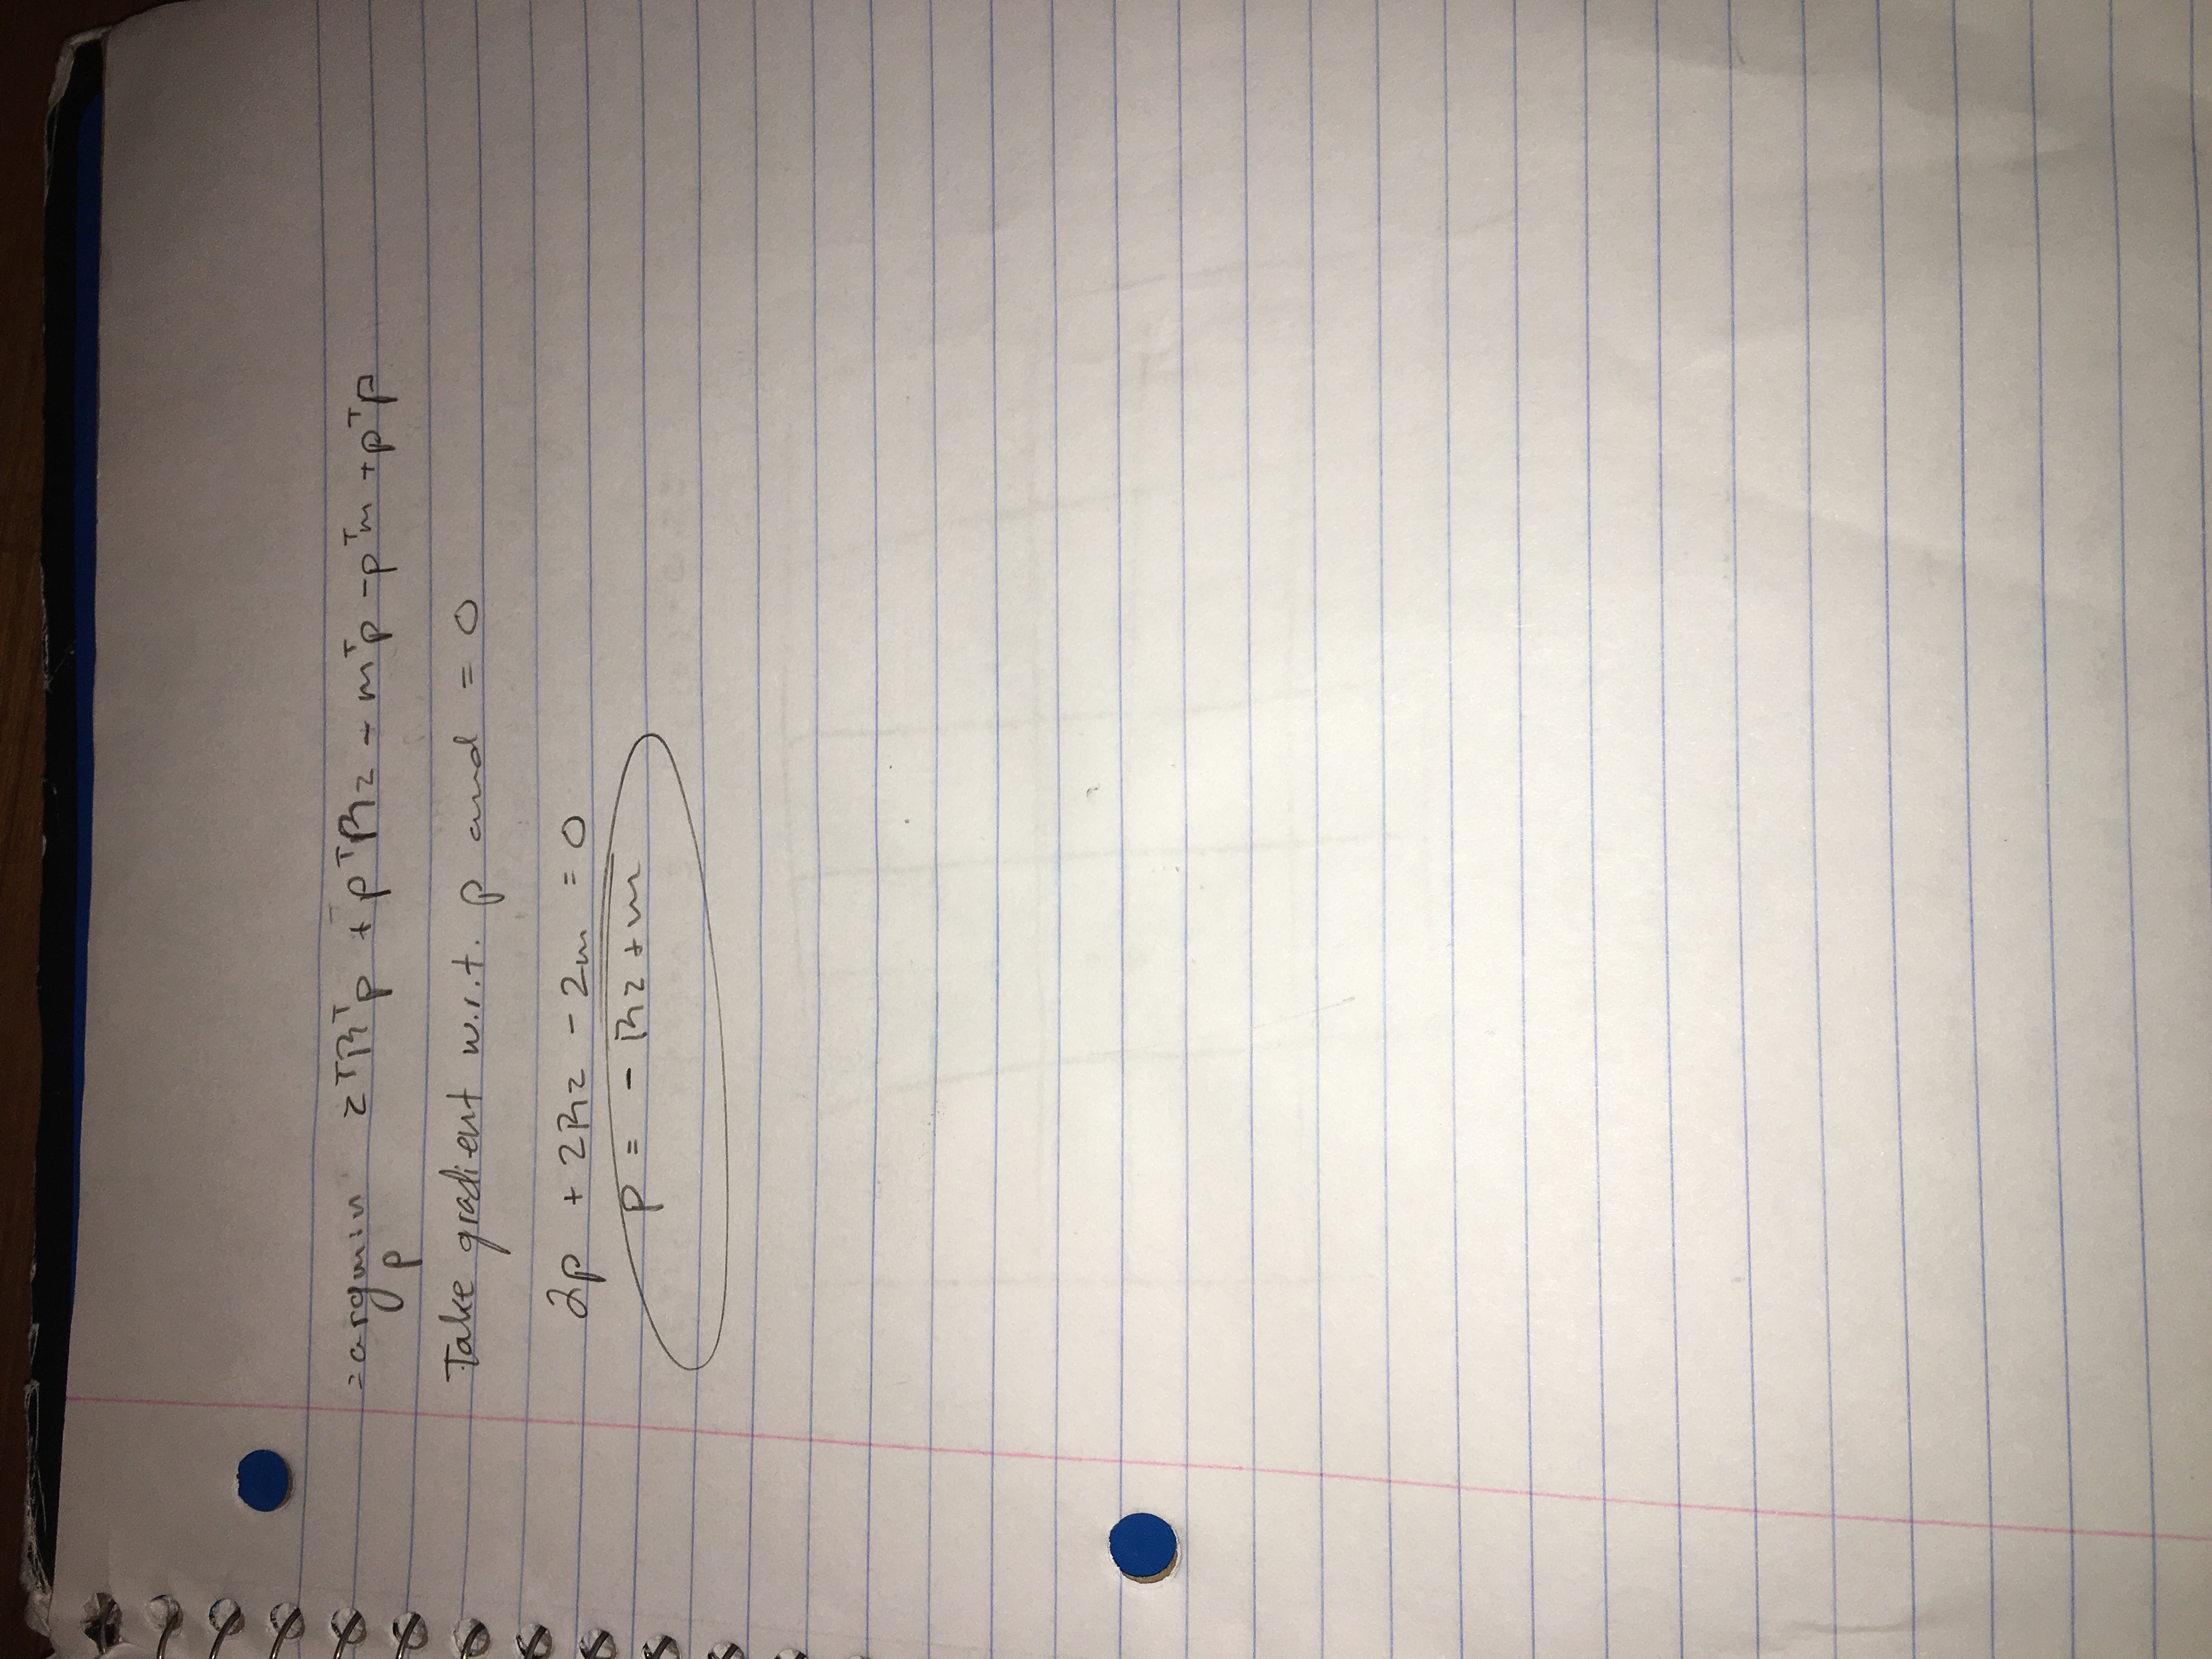 = argmin zᵀRᵀp + pᵀRz - mᵀp - pᵀm + pᵀp
p
Take gradient w.r.t. p and = 0
2p + 2Rz - 2m = 0
p = - Rz + m